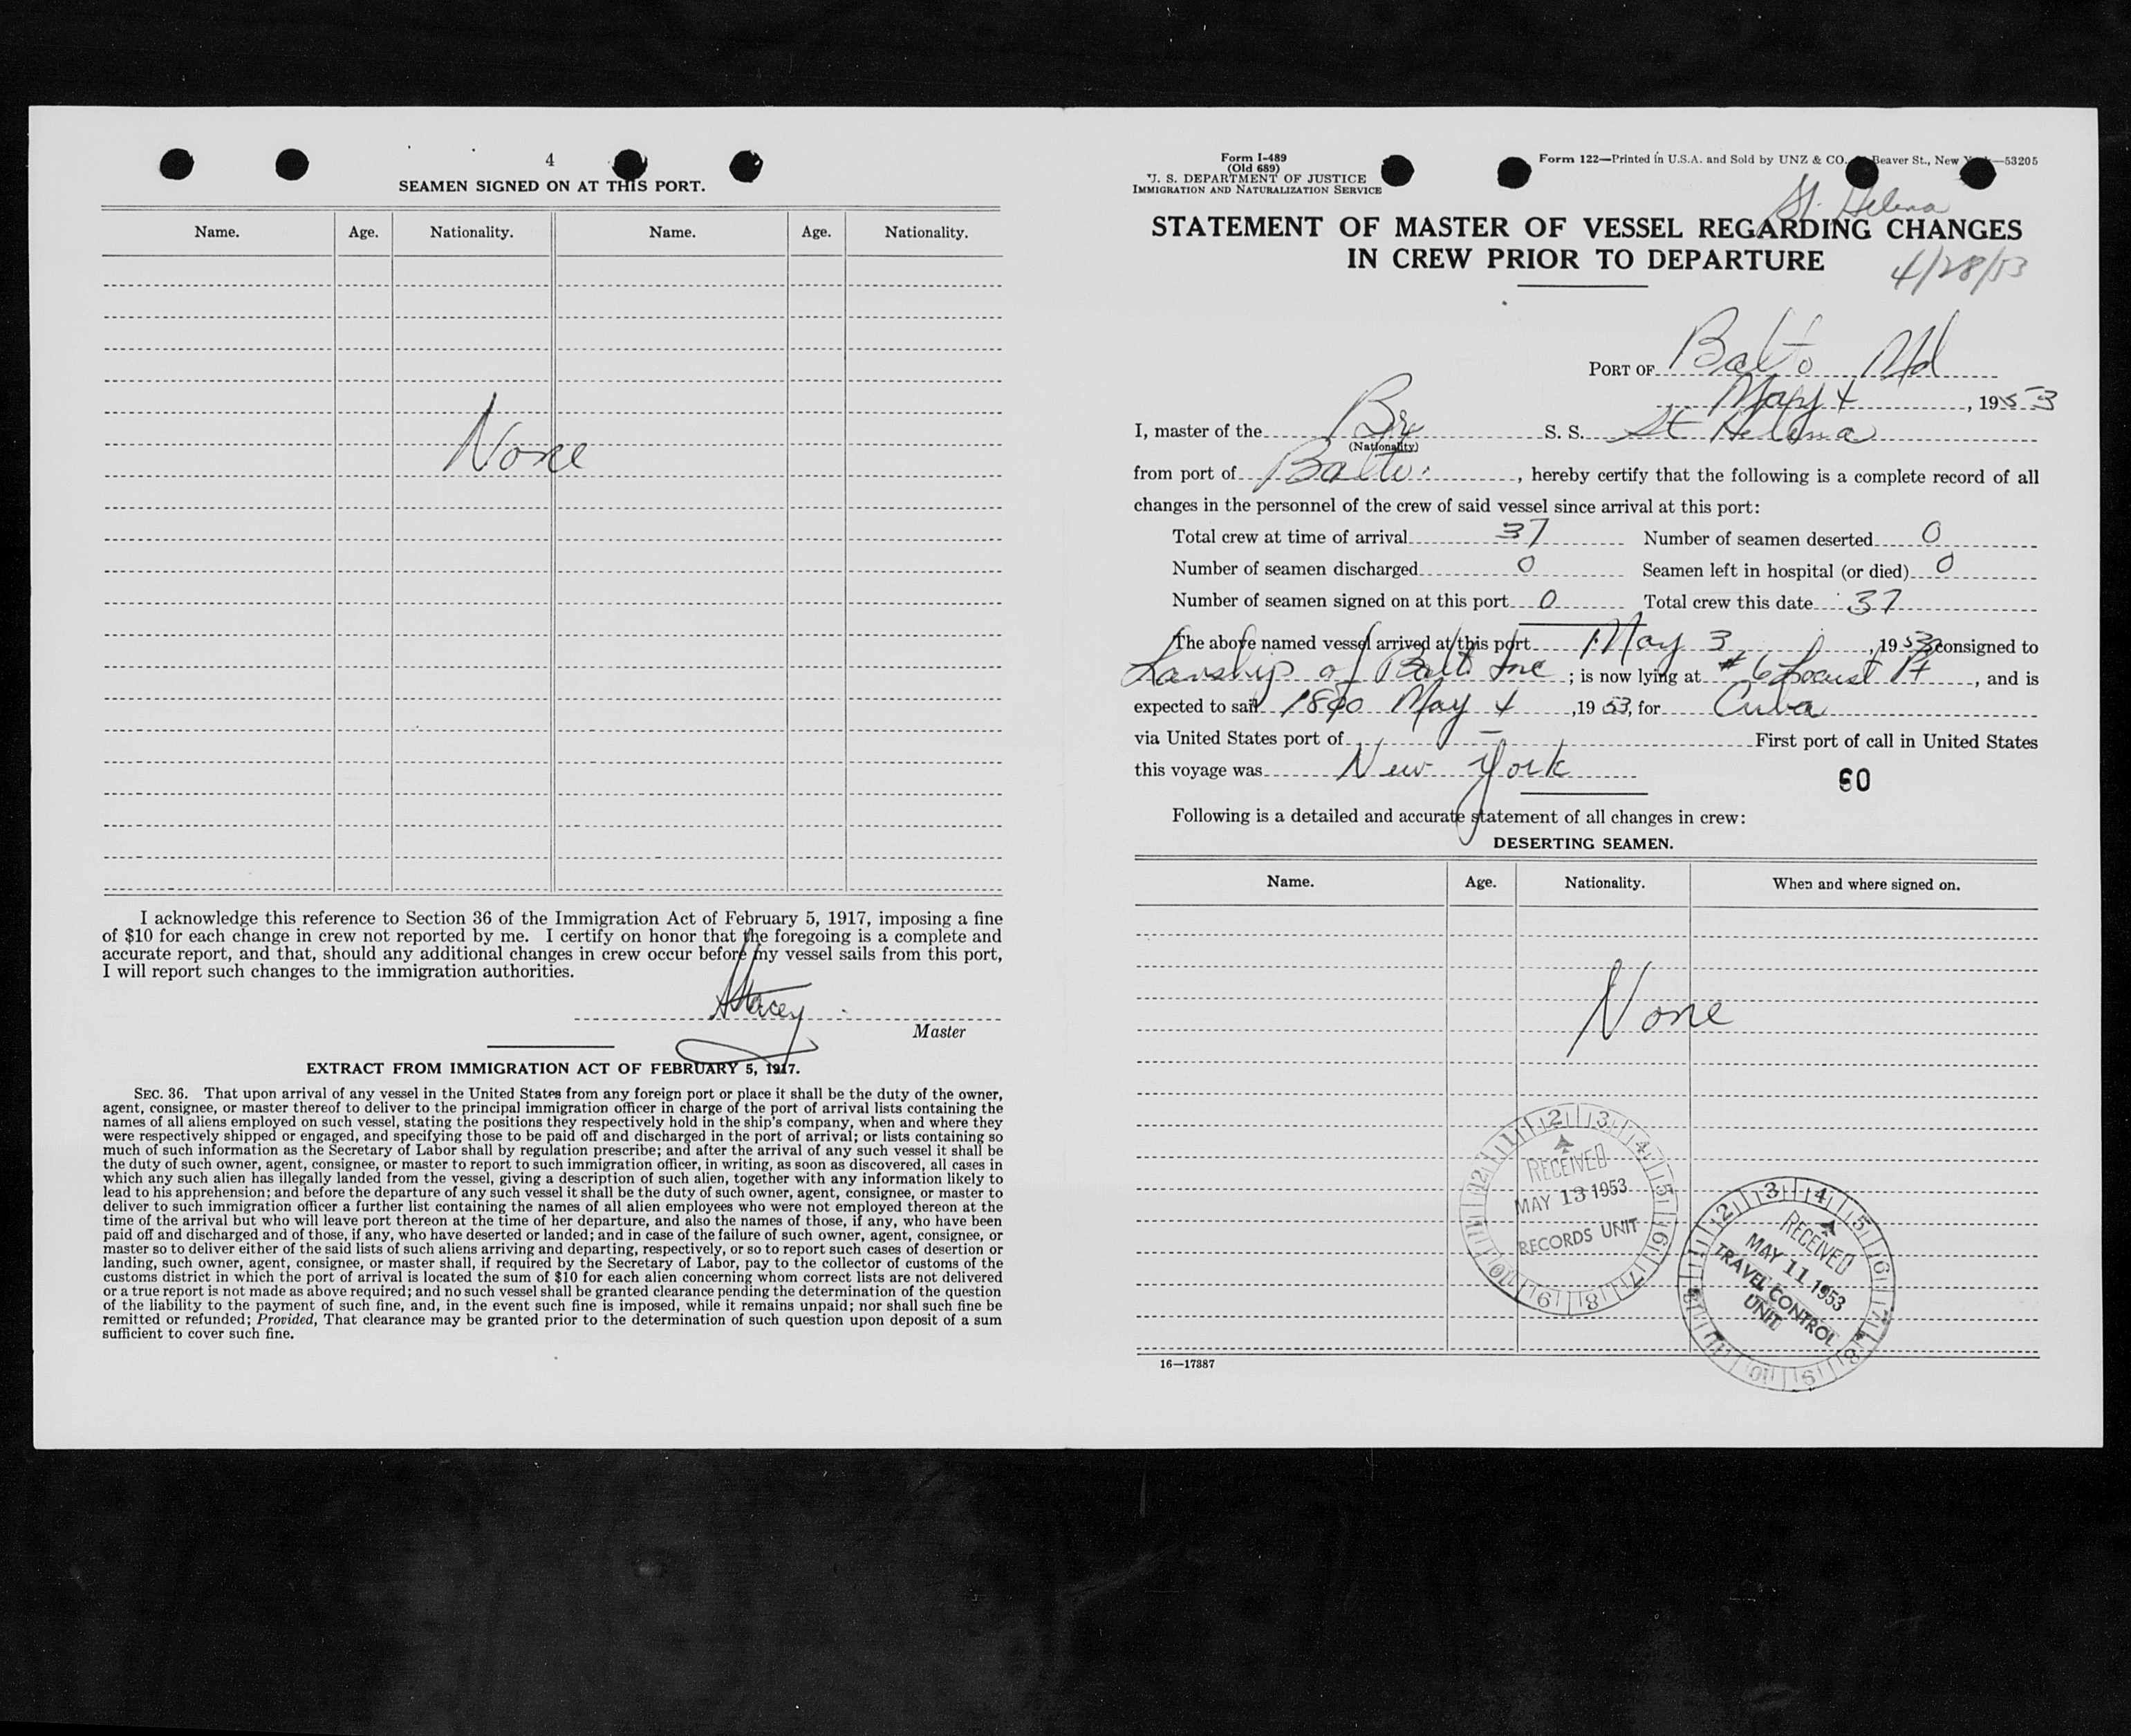 4
SEAMEN SIGNED ON AT THIS PORT.
Name. Age. Nationality. Name. Age. Nationality.
None
I acknowledge this reference to Section 36 of the Immigration Act of February 5, 1917, imposing a fine
of $10 for each change in crew not reported by me. I certify on honor that the foregoing is a complete and
accurate report, and that, should any additional changes in crew occur before my vessel sails from this port,
I will report such changes to the immigration authorities.
Master
EXTRACT FROM IMMIGRATION ACT OF FEBRUARY 5, 1917.
SEC. 36. That upon arrival of any vessel in the United States from any foreign port or place it shall be the duty of the owner,
agent, consignee, or master thereof to deliver to the principal immigration officer in charge of the port of arrival lists containing the
names of all aliens employed on such vessel, stating the positions they respectively hold in the ship's company, when and where they
were respectively shipped or engaged, and specifying those to be paid off and discharged in the port of arrival; or lists containing so
much of such information as the Secretary of Labor shall by regulation prescribe; and after the arrival of any such vessel it shall be
the duty of such owner, agent, consignee, or master to report to such immigration officer, in writing, as soon as discovered, all cases in
which any such alien has illegally landed from the vessel, giving a description of such alien, together with any information likely to
lead to his apprehension; and before the departure of any such vessel it shall be the duty of such owner, agent, consignee, or master to
deliver to such immigration officer a further list containing the names of all alien employees who were not employed thereon at the
time of the arrival but who will leave port thereon at the time of her departure, and also the names of those, if any, who have been
paid off and discharged and of those, if any, who have deserted or landed; and in case of the failure of such owner, agent, consignee, or
master so to deliver either of the said lists of such aliens arriving and departing, respectively, or so to report such cases of desertion or
landing, such owner, agent, consignee, or master shall, if required by the Secretary of Labor, pay to the collector of customs of the
customs district in which the port of arrival is located the sum of $10 for each alien concerning whom correct lists are not delivered
or a true report is not made as above required; and no such vessel shall be granted clearance pending the determination of the question
of the liability to the payment of such fine, and, in the event such fine is imposed, while it remains unpaid; nor shall such fine be
remitted or refunded; Provided, That clearance may be granted prior to the determination of such question upon deposit of a sum
sufficient to cover such fine.
Form I-489
(Old 689)
U. S. DEPARTMENT OF JUSTICE
IMMIGRATION AND NATURALIZATION SERVICE
Form 122—Printed in U.S.A. and Sold by UNZ & CO. Beaver St., New —53205
St. Helena
STATEMENT OF MASTER OF VESSEL REGARDING CHANGES
IN CREW PRIOR TO DEPARTURE
4/28/53
PORT OF Balto Md
May 4, 1953
I, master of the Br S. S. St Helena
(Nationality)
from port of Balto., hereby certify that the following is a complete record of all
changes in the personnel of the crew of said vessel since arrival at this port:
Total crew at time of arrival 37 Number of seamen deserted 0
Number of seamen discharged 0 Seamen left in hospital (or died) 0
Number of seamen signed on at this port 0 Total crew this date 37
The above named vessel arrived at this port May 3, 1953 consigned to
of Balto Inc; is now lying at #6 Locust Pt, and is
expected to sail May 4, 1953, for Cuba
via United States port of — First port of call in United States
this voyage was New York
60
Following is a detailed and accurate statement of all changes in crew:
DESERTING SEAMEN.
Name. Age. Nationality. When and where signed on.
None
RECEIVED
MAY 13 1953
RECORDS UNIT
RECEIVED
MAY 11 1953
TRAVEL CONTROL
UNIT
16—17387